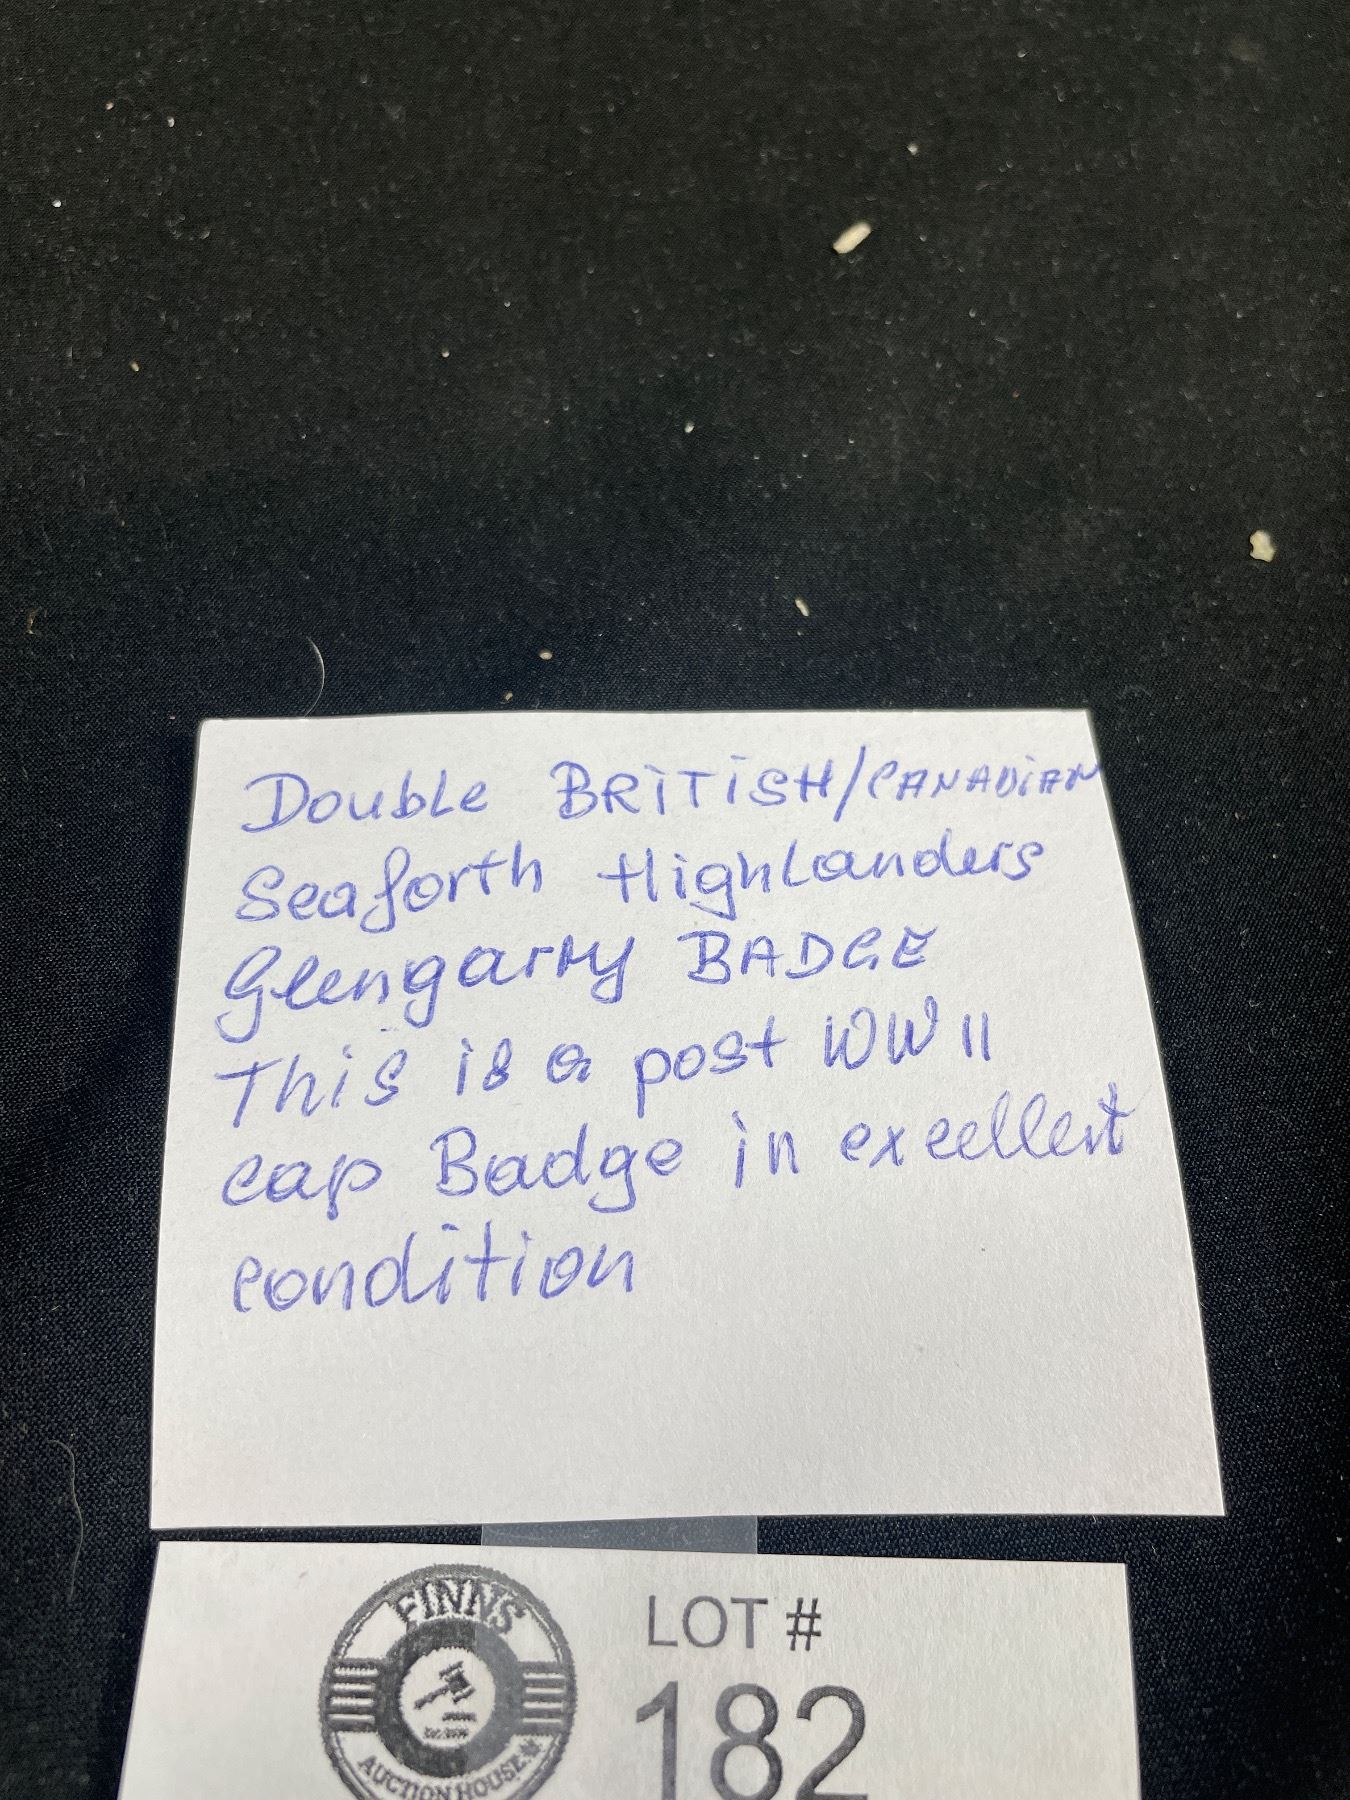 Double BRITISH/CANADIAN
Seaforth Highlanders
Glengarry BADGE
This is a post WW II
cap Badge in excellent
condition
FINNS
AUCTION HOUSE
LOT #
182